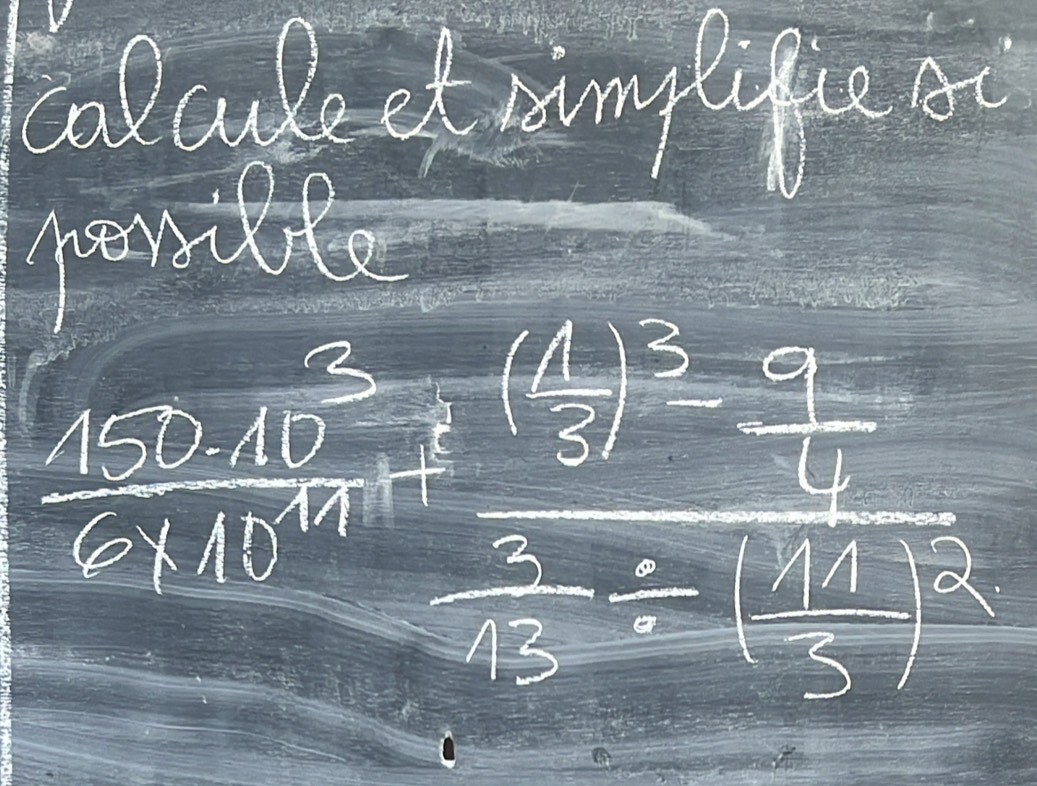 calcule et simplifie si
possible
\frac{150 \cdot 10^3}{6 \times 10^{11}} + \frac{\left(\frac{1}{3}\right)^3 - \frac{9}{4}}{\frac{3}{13} \div \left(\frac{11}{3}\right)^2}.